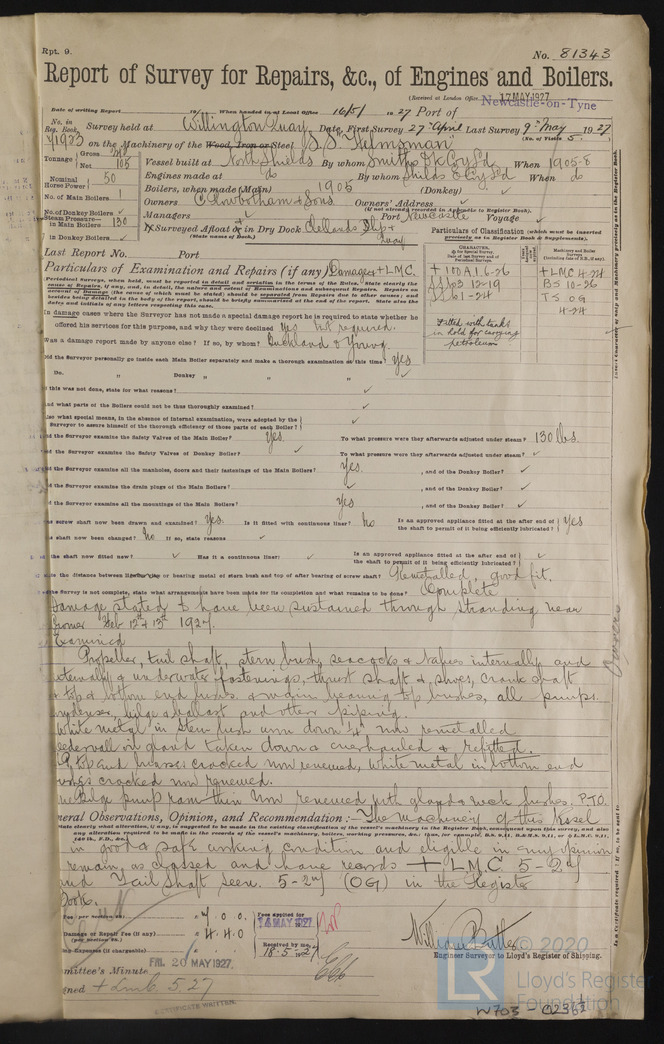 Rpt. 9.
No. 81343
Report of Survey for Repairs, &c., of Engines and Boilers.
(Received at London Office 17 MAY 1927
Date of writing Report 19 When handed in at Local Office 16/5/ 1927 Port of Newcastle-on-Tyne
No. in Reg. Book. Survey held at Willington Quay Date, First Survey 27th April Last Survey 9th May 1927
(No. of Visits 5.)
on the Machinery of the Wood, Iron or Steel S.S. Helmsman
Tonnage Gross Net 105
Vessel built at North Shields By whom Smiths Dk Coy Ld When 1905-8
Nominal Horse Power 50
Engines made at do By whom Shields Eng Ld When do
No. of Main Boilers 1
Boilers, when made (Main) 1905 (Donkey) ✓
Owners C. Rowbotham & Sons Owners' Address ✓
(if not already recorded in Appendix to Register Book.)
No. of Donkey Boilers ✓
Managers Port Newcastle Voyage ✓
Steam Pressure in Main Boilers 130
in Donkey Boilers ✓
If Surveyed Afloat or in Dry Dock Clelands Slip &
(State name of Dock.)
Particulars of Classification (which must be inserted precisely as in Register Book & Supplements).
Last Report No. Port
Particulars of Examination and Repairs (if any) Damage & LMC.
+100A1. 6-26
SS No3 12-19
SS No1-24
+LMC 4-24
BS 10-26
TS OG
4-24
Fitted with tanks
in hold for carrying
petroleum
In damage cases where the Surveyor has not made a special damage report he is required to state whether he
offered his services for this purpose, and why they were declined Yes not required.
Was a damage report made by anyone else? If so, by whom? Buckland & Young.
Did the Surveyor personally go inside each Main Boiler separately and make a thorough examination at this time? yes
Do. " Donkey " " " ✓
If this was not done, state for what reasons? ✓
And what parts of the Boilers could not be thus thoroughly examined? ✓
Also what special means, in the absence of internal examination, were adopted by the
Surveyor to assure himself of the thorough efficiency of those parts of each Boiler? ✓
Did the Surveyor examine the Safety Valves of the Main Boiler? yes. To what pressure were they afterwards adjusted under steam? 130 lbs.
Did the Surveyor examine the Safety Valves of Donkey Boiler? ✓ To what pressure were they afterwards adjusted under steam? ✓
Did the Surveyor examine all the manholes, doors and their fastenings of the Main Boilers? yes. , and of the Donkey Boiler? ✓
Did the Surveyor examine the drain plugs of the Main Boilers? ✓ , and of the Donkey Boiler? ✓
Did the Surveyor examine all the mountings of the Main Boilers? yes , and of the Donkey Boiler? ✓
Has screw shaft now been drawn and examined? Yes. Is it fitted with continuous liner? no Is an approved appliance fitted at the after end of the shaft to permit of it being efficiently lubricated? yes
Has shaft now been changed? no If so, state reasons ✓
Is the shaft now fitted new? ✓ Has it a continuous liner? ✓ Is an approved appliance fitted at the after end of the shaft to permit of it being efficiently lubricated? ✓
State the distance between lignum vitæ or bearing metal of stern bush and top of after bearing of screw shaft? Remetalled, good fit.
If the Survey is not complete, state what arrangements have been made for its completion and what remains to be done? Complete
Damage stated to have been sustained through stranding near
Cromer Feb 12th & 13th 1927.
Examined
Propeller, tail shaft, stern bush, seacocks & valves internally and
externally & underwater fastenings, thrust shaft & shoes, crank shaft
& top & bottom end bushes & main bearing bushes, all pumps
condenser, bilge & ballast and other piping.
White metal in stern bush worn down 1/4" now remetalled
Cedervall oil gland taken down & overhauled & refitted.
top end brasses cracked now renewed, white metal in bottom end
cracked now renewed.
Bilge pump ram thin now renewed with gland & neck bushes. P.T.O.
General Observations, Opinion, and Recommendation:— The machinery of this Vessel
is in good & safe working condition and eligible in my opinion
to remain as classed and have records + L.M.C. 5-27
and Tail shaft seen. 5-27 (OG) in the Register
Book.
Fee (per section 28) 4 : 0 : 0
Damage or Repair Fee (if any) 4 : 4 : 0
Fees applied for
14 MAY 1927
Received by me,
18.5.1927
William Butler
Engineer Surveyor to Lloyd's Register of Shipping.
Committee's Minute
FRI. 20 MAY 1927
Assigned + LMC 5.27
CERTIFICATE WRITTEN.
© 2020
Lloyd's Register
Foundation
W703-0236